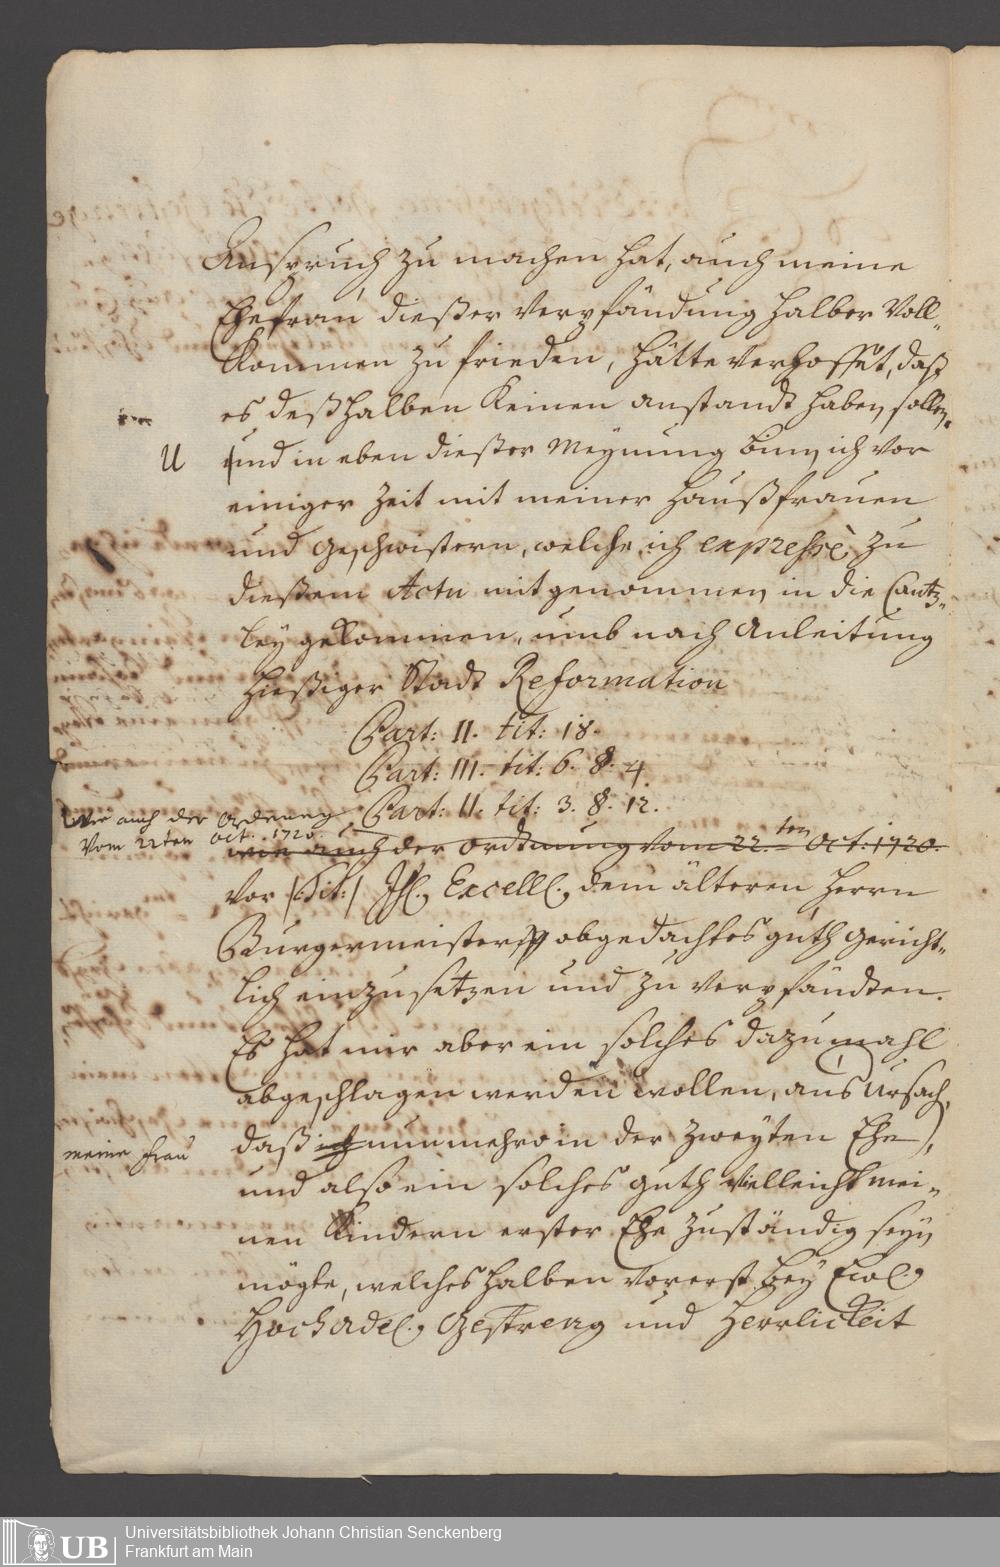 Anspruch zu machen hat, auch meine
Ehefrau dießer Verpfändung halber Voll-
kommen zu frieden, hätte verhoffet, daß
es deßhalben keinen anstandt haben sollen.
U
und in eben dießer Meynung bin ich vor
einiger Zeit mit meiner Haußfrauen
und Geschwistern, welche ich expressè zu
dießem Actu mitgenommen in die Cantz-
ley gekommen, umb nach Anleitung
hießiger Stadt Reformation
Part: II. tit: 18.
Part: III. tit: 6. §. 4
Part: II. tit: 3. §. 12.
wie auch der Ordenung
Vom 22ten Oct. 1720.
wie auch der Ordnung vom 22.ten Oct: 1720.
vor /:Tit:/ Ihl. Excell. dem älteren Herrn
Burgermeister obgedachtes guth Gericht-
lich einzusetzen und zu Verpfändten.
Es hat mir aber ein solches dazumahl
abgeschlagen werden wollen, aus Ursach,
meine Frau
daß ich nunmehro in der Zweyten Ehe,
und also ein solches guth Velleicht mei-
nen Kindern erster Ehe zuständig seyn
mögte, welches halben Vorerst bey Ewl.
HochAdel. Gestreng und Herrlickeit
UB
Universitätsbibliothek Johann Christian Senckenberg
Frankfurt am Main